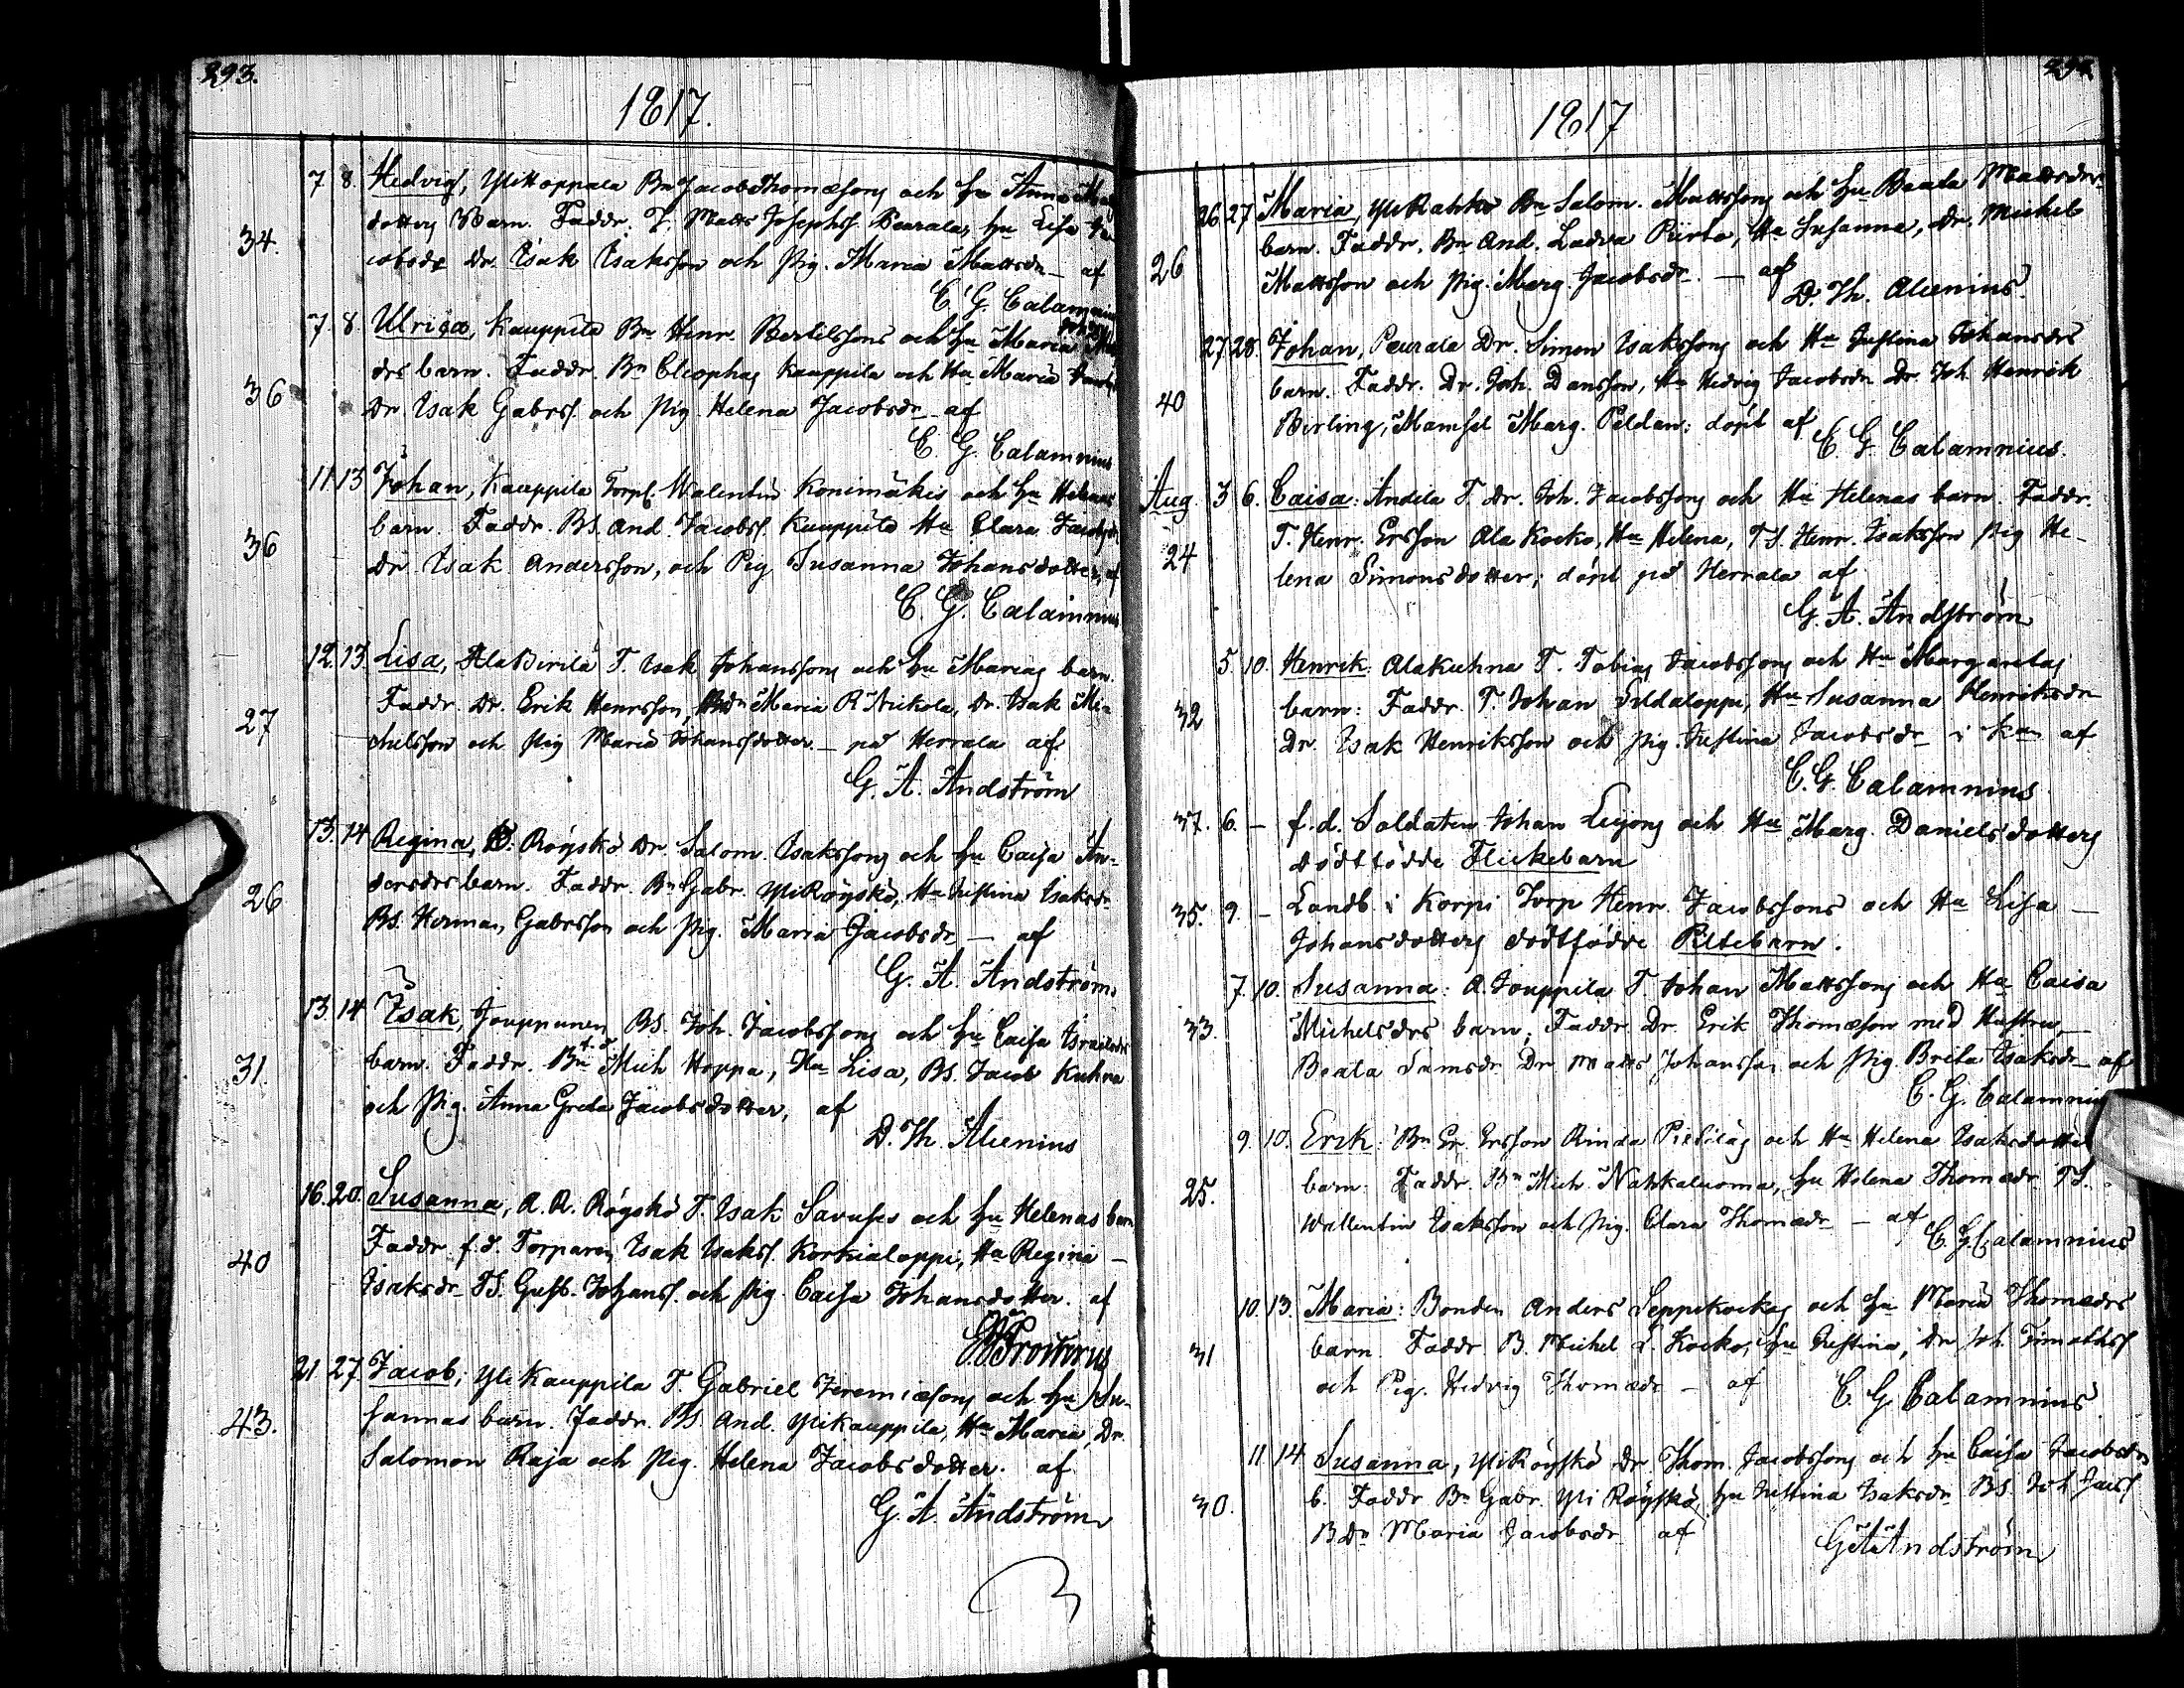 293.
1817.
7. 8. Hedvig, Yli Hoppala Bn Jacob Thomæsons och hu Anna
34.
dotters Barn. Faddr. T. Matts Josephs. Peurala, hu Lisa Ja-
cobsdr Dr. Isak Isaksson och Pig. Maria Mattsdr — af
C. G. Calamnius
7. 8. Ulrica, Kauppila Bn Henr. Bertilssons och hu Maria
36
drs barn. Faddr. Bn Cleophas Kauppila och Hu Maria
Dr Isak Gabrs. och Pig. Helena Jacobsdr af
C. G. Calamnius
11. 13 Johan, Kauppila Torp. Walentin Konimäkis och hu Helenas
36
barn. Faddr. BS. And. Jacobss. Kauppila Hu Clara
Dr. Isak Andersson, och Pig Susanna Johansdotter, af
C. G. Calamnius
12. 13. Lisa, T. Isak Johanssons och hu Marias barn.
27
Faddr. Dr. Erik Henrsson, Maria Dr. Isak Mi-
chelsson och Pig Maria Johansdotter — på Herrala af
G. A. Andström
13. 14 Regina, Röyskö Dr. Salom. Isakssons och hu Caisa An-
26
dersdrs barn. Faddr. Bn Gabr. Yli Röyskö, Hu Justina Isaksdr
BS. Herman Gabrsson och Pig. Maria Jacobsdr — af
G. A. Andström
13. 14 Isak, Jouppunen BS. Joh. Jacobssons och hu Caisa Israelsdrs
31.
barn. Faddr. Bn Mich Hoppa, Hu Lisa, BS. Jacob Kuhna
och Pig. Anna Greta Jacobsdotter, af
D. Th. Alcenius
16. 20. Susanna, R. R. Röyskö T. Isak och hu Helenas barn
40
Faddr. f. d. Torparen Isak Isaks. Korkialoppi, Hu Regina —
Isaksdr TS. Gust. Johanss. och Pig. Caisa Johansdotter. af
21 27. Jacob; Yli Kauppila T. Gabriel Jeremiæsons och hu Su-
43.
sannas barn. Faddr. BS. And. Ylikauppila, Hu Maria, Dr.
Salomon Raja och Pig. Helena Jacobsdotter. af
G. A. Andström
1817
26 27 Maria, Yli Rahko Bn Salom. Mattssons och hu Beata Mattsdrs
26
barn. Faddr. Bn And. Ladva Hu Susanna, Dr. Michel
Mattsson och Pig. Marg. Jacobsdr. — af
D. Th. Alcenius.
27. 28. Johan, Peurala Dr. Simon Isakssons och Hu Justina Johansdrs
40
barn. Faddr. Dr. Joh. Dansson, Hu Hedvig Jacobsdr Dr. Joh. Henrik
Berling, Mamsel Marg. Peldan: döpt af
C. G. Calamnius.
Aug. 3 6. Caisa: Andila T. Dr. Joh. Jacobssons och Hu Helenas barn Faddr.
24
T. Henr. Ersson Ala Kocko, Hu Helena, TS. Henr. Isaksson Pig He-
lena Simonsdotter; döpt på Herrala af
G. A. Andström
5. 10. Henrik Alakuhna T. Tobias Jacobssons och Hu Margaretas
32
barn: Faddr. T. Johan Hu Susanna Henriksdr
Dr. Isak Henriksson och Pig. Justina Jacobsdr i k:an af
C. G. Calamnius
37. 6. — f. d. Soldaten Johan Leijons och Hu Marg. Danielsdotters
dödfödde Flickebarn
35. 9. — Landb. i Korpi Torp Henr. Jacobssons och Hu Lisa —
Johansdotters dödfödde Piltebarn.
7. 10. Susanna: A. Jouppila T. Johan Mattssons och Hu Caisa
33.
Michelsdrs barn; Faddr. Dr. Erik Thomæson med Hustru —
Beata Samsdr Dr Matts Johansson och Pig. Brita Isaksdr — af
C. G. Calamnius
9. 10. Erik: Bn Er. Ersson Rinda och Hu Helena Isaksdotters
25.
barn. Faddr. Bn Mich. Nahkaluoma, hu Helena Thomædr TS.
Wallentin Isaksson och Pig. Clara Thomædr — af
C. G. Calamnius
10. 13. Maria: Bonden Anders Seppikockas och hu Maria Thomædrs
31
barn. Faddr. B. Michel L. Kocko, hu Justina, Dr Joh. Timothss
och Pig. Hedvig Thomædr — af
C. G. Calamnius
11. 14 Susanna, Yli Röyskö Dr Thom. Jacobssons och hu Caisa Jacobsdrs
30.
b. Faddr Bn Gabr. Yli Röyskö, hu Justina Isaksdr BS. Joh Jacs
BDr Maria Jacobsdr af
G A Andström